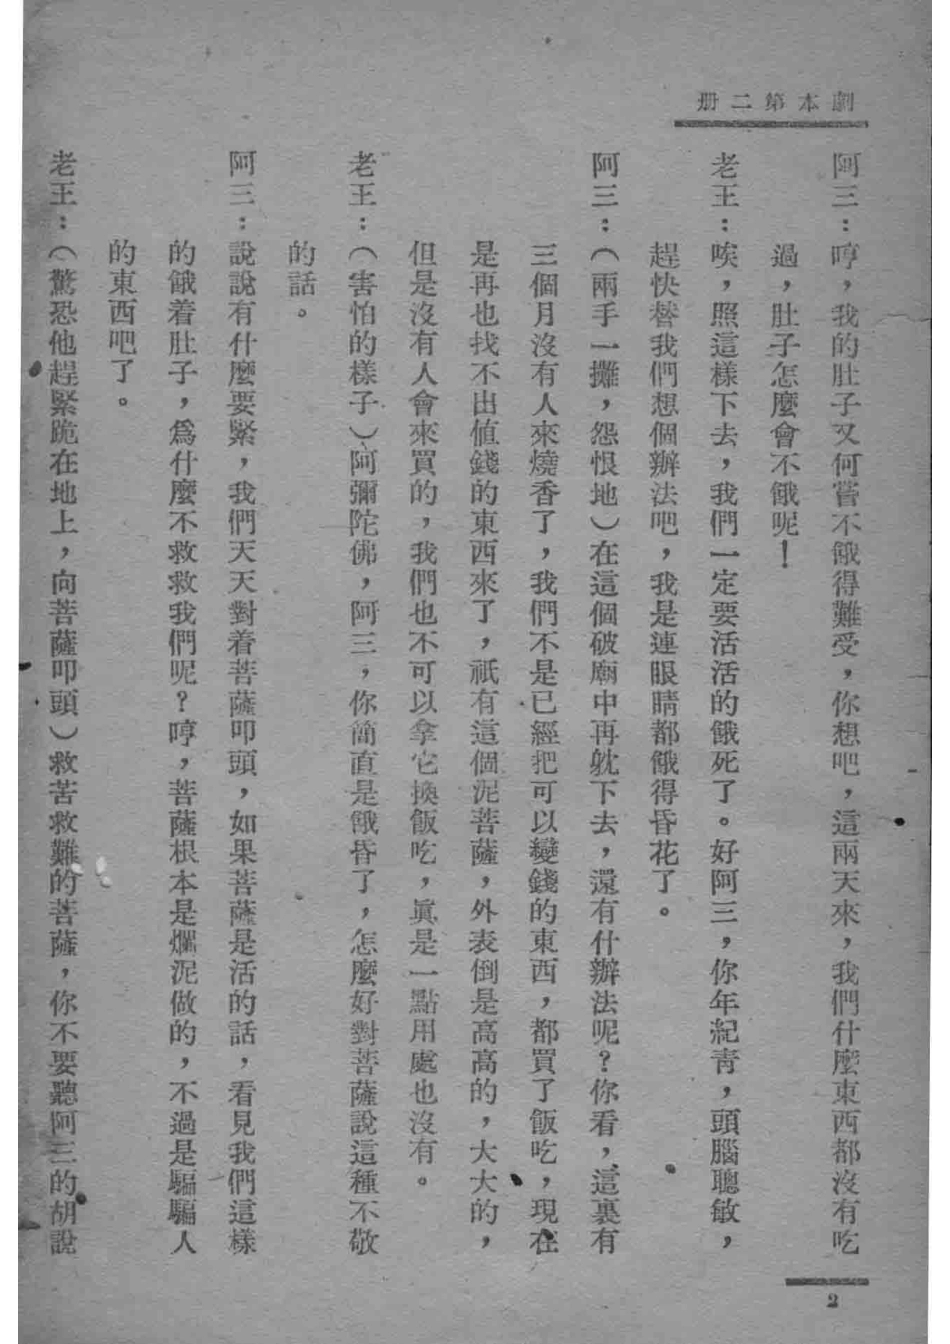 劇本第二册
阿三：哼，我的肚子又何嘗不餓得難受，你想吧，這兩天來，我們什麼東西都沒有吃
過，肚子怎麼會不餓呢！
老王：唉，照這樣下去，我們一定要活活的餓死了。好阿三，你年紀靑，頭腦聰敏，
趕快替我們想個辦法吧，我是連眼睛都餓得昏花了。
阿三：（兩手一攤，怨恨地）在這個破廟中再躭下去，還有什辦法呢？你看，這裏有
三個月沒有人來燒香了，我們不是已經把可以變錢的東西，都買了飯吃，現在
是再也找不出値錢的東西來了，祇有這個泥菩薩，外表倒是高高的，大大的，
但是沒有人會來買的，我們也不可以拿它換飯吃，眞是一點用處也沒有。
老王：（害怕的樣子）阿彌陀佛，阿三，你簡直是餓昏了，怎麼好對菩薩說這種不敬
的話。
阿三：說說有什麼要緊，我們天天對着菩薩叩頭，如果菩薩是活的話，看見我們這樣
的餓着肚子，爲什麼不救救我們呢？哼，菩薩根本是爛泥做的，不過是騙騙人
的東西吧了。
老王：（驚恐他趕緊跪在地上，向菩薩叩頭）救苦救難的菩薩，你不要聽阿三的胡說
2